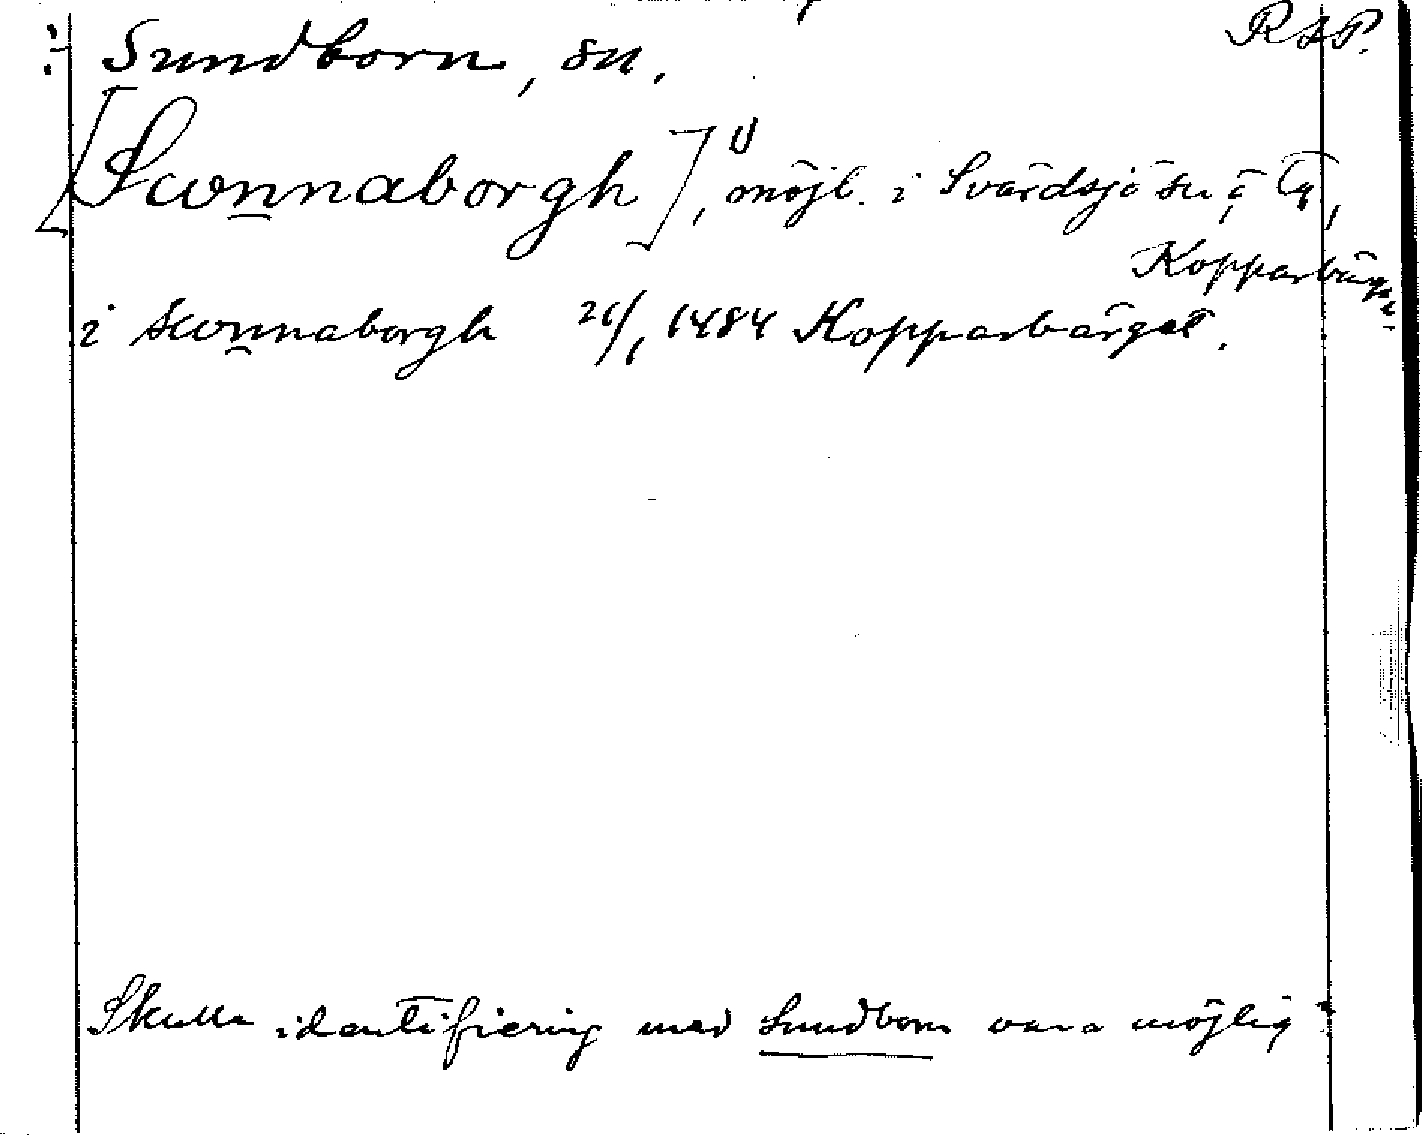 ÷ Sundborn, sn. RAP.
[Swonnaborgh] 1), möjl. i Svärdsjö sn,
Kopparbärgs l.
i swonnaborgh 26/1 1484 Kopparbärget.
Skulle identifiering med Sundborn vara möjlig?